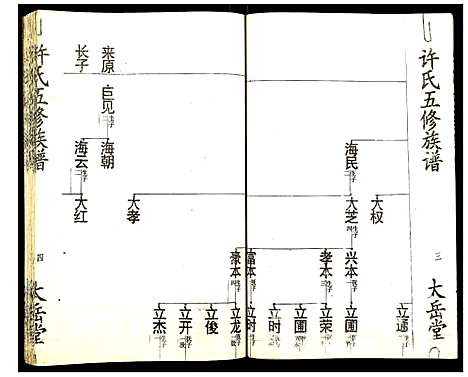 许氏五修族谱
三
太岳堂
海民
大权
大芝
兴本
孝本
富本
豪本
立通
立圃
立荣
立圃
立时
立时
立龙
立俊
立开
立杰
来原
长子
巨见
海朝
海云
大孝
大红
许氏五修族谱
四
太岳堂